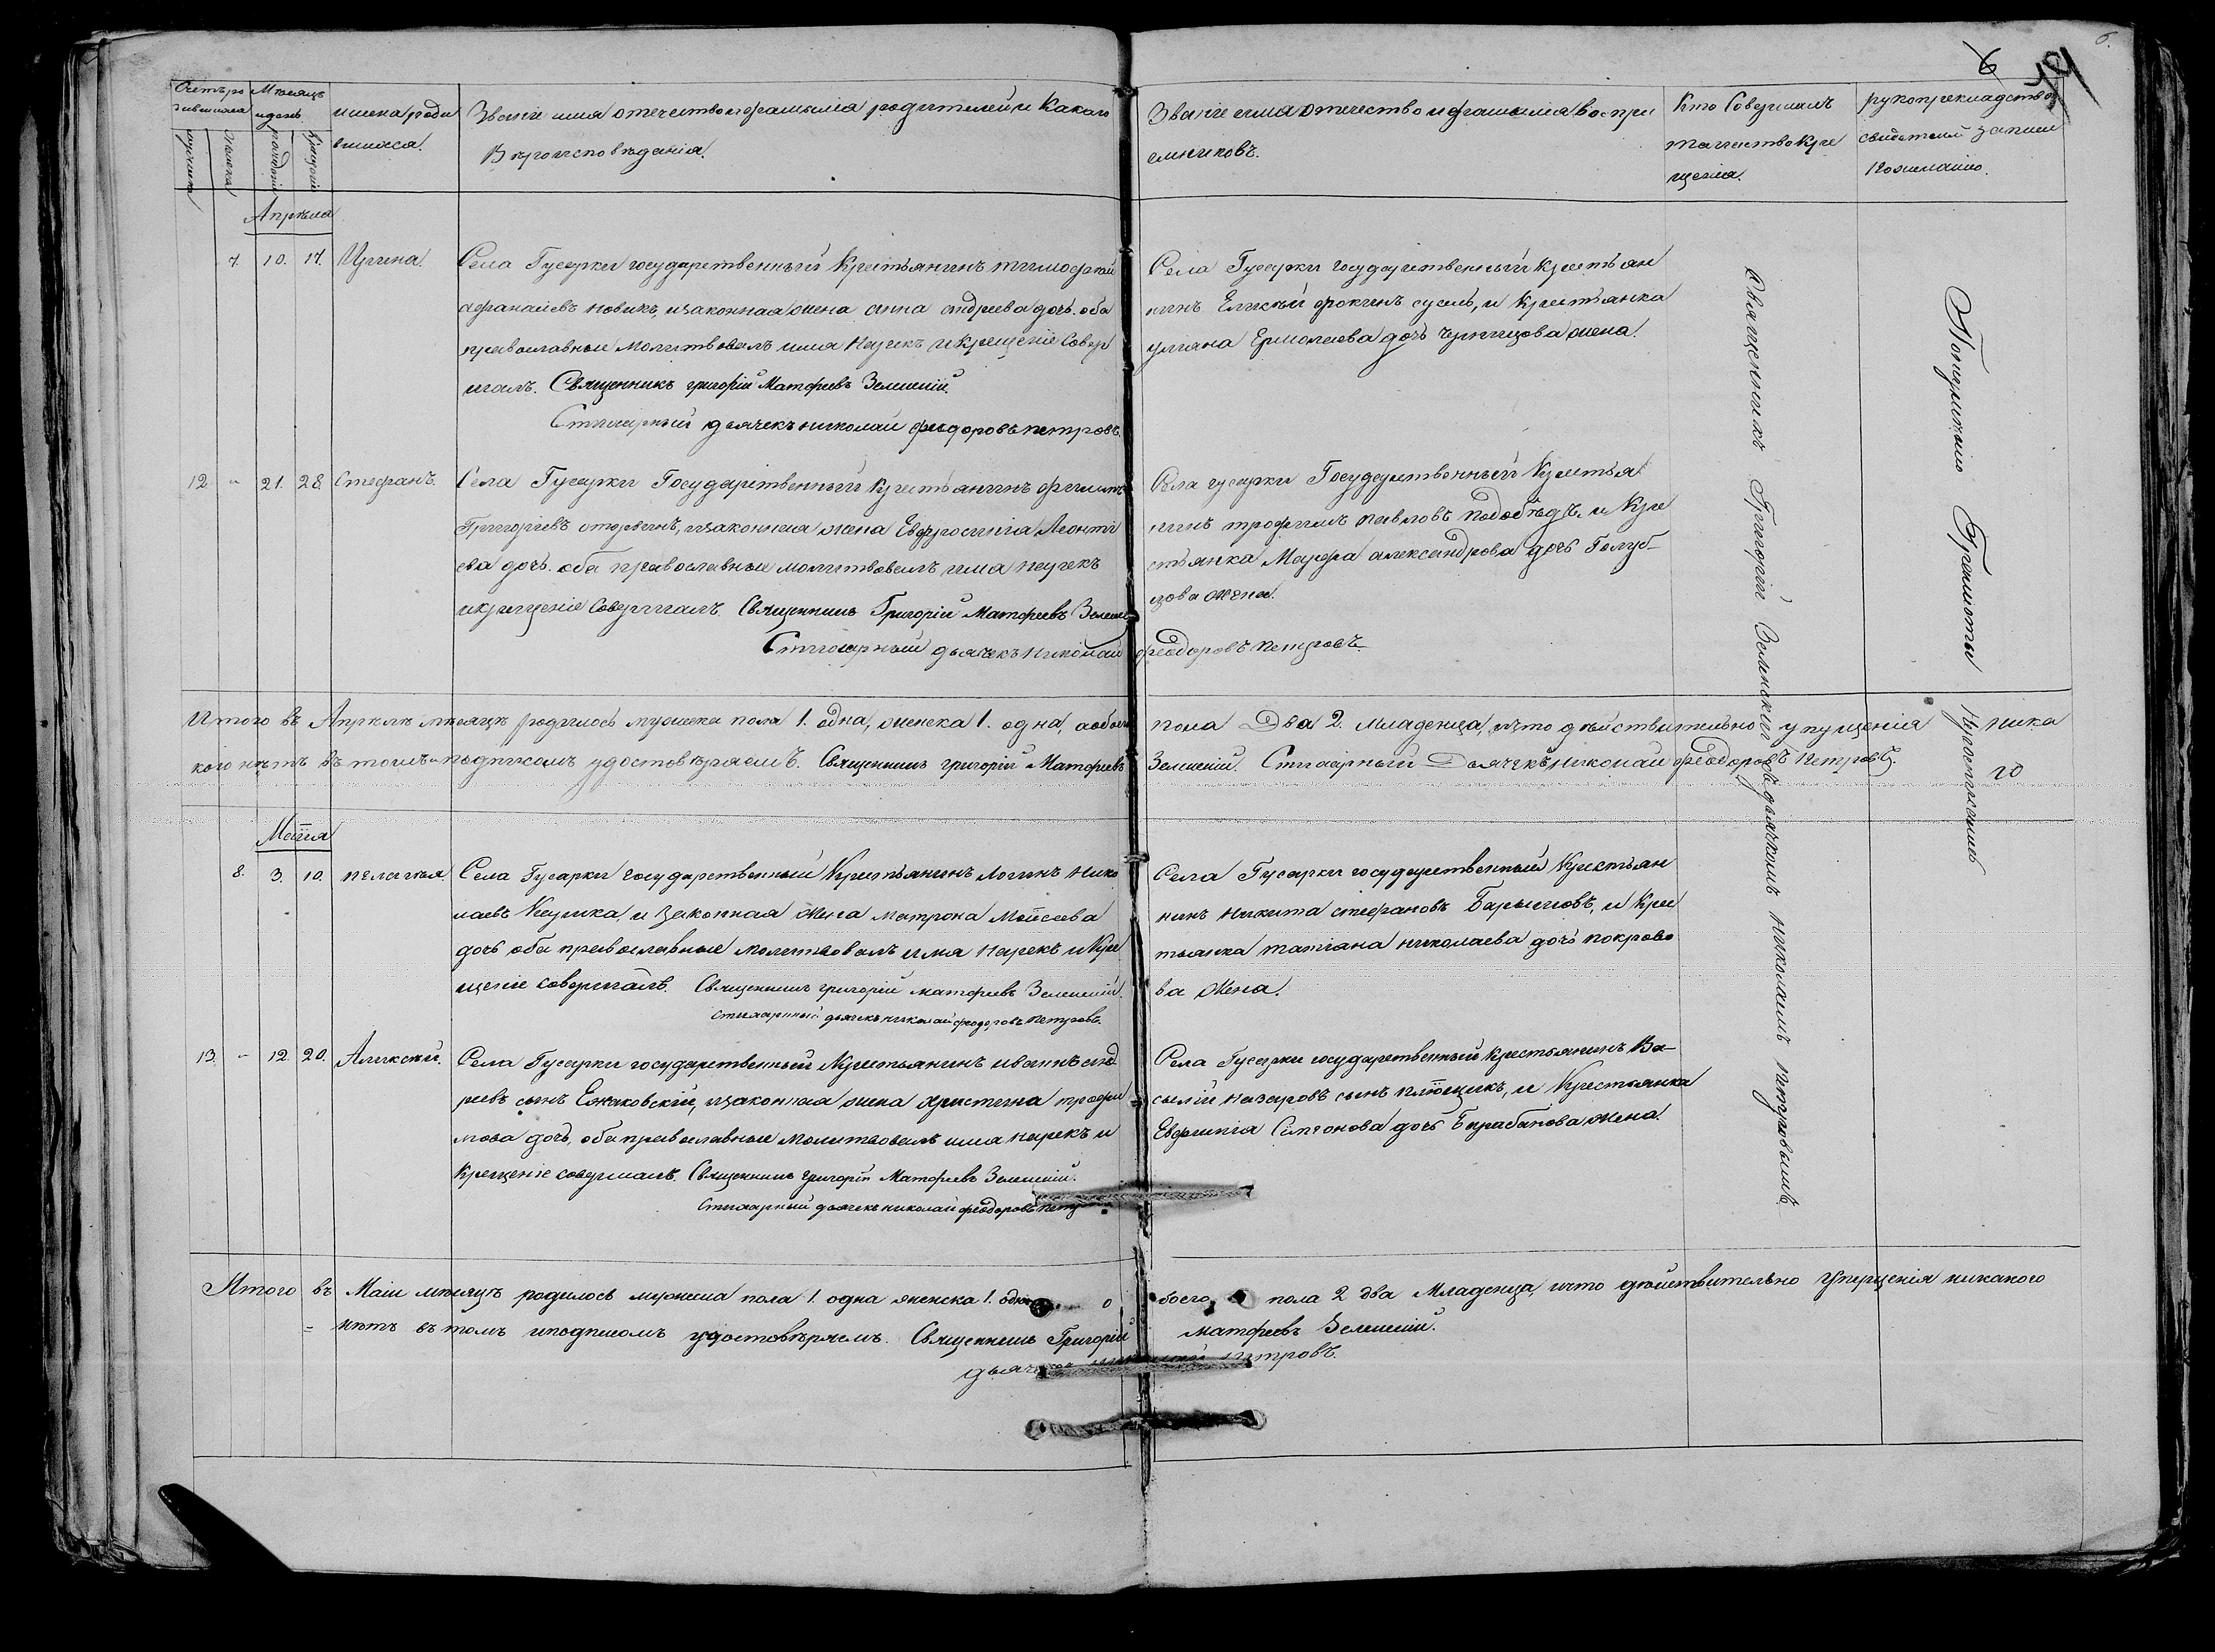 6
6.
Счетъ ро
дившихся
Мѣсяцъ
и день
мужеска
женска
рожденiя
крещенiя
имена роди
вшихся.
Званiе имя отечество и фамилiя родителей, и Какого
Вѣроисповѣданiя.
Званiе имя отечество и фамилiя воспри
емниковъ.
Кто Совершалъ
таинство Кре
щенiя.
рукоприкладство
свидѣтелей записи
по желанiю.
Апрѣля
7. 10. 17. Ирина.
Села Гусарки государственный Крестьянинъ тимофей
афанасiевъ новикъ, изаконная жена анна андреева дочь. оба
православные молитвовалъ имя Нарекъ и Крещенiе Совер
шалъ. Священникъ григорiй Матфеевъ Зеленскiй.
Стихарный дьячекъ николай феодоровъ петровъ.
Села Гусарки государственный Крестьян
нинъ Елисѣй фокинъ сусль, и Крестьянка
улiана Ермолаева дочь жена.
12 - 21. 28. Стефанъ.
Села Гусарки Государственный Крестьянинъ филипъ
Григорiевъ изаконная жена Евфросинiа Леонтi
ева дочь. оба православные молитвовалъ имя нарекъ
икрещенiе Совершалъ. Священникъ Григорiй Матфеевъ Зеленск
Стихарный дьячекъ николай феодоровъ петровъ.
Села гусарки Государственный Крестья
нинъ трофимъ павловъ подобѣдъ, и Кре
стьянка Марфа александрова дочь Голуб-
цова жена.
Итого въ Апрѣлѣ мѣсяцѣ родилось мужеска пола 1. одна, женска 1. одна, аобоего
пола Два 2. Младенца, ичто дѣйствительно упущенiя ника
кого нѣтъ въ томъ и подписомъ удостовѣряемъ. Священникъ григорiй Матфеевъ
Зеленскiй. Стихарный Дьячекъ николай феодоровъ Петровъ.
Маiя
8. 3. 10. пелагiя.
Села Гусарки государственный Крестьянинъ Логинъ Нико
лаевъ и законная жена матрона Моисеева
дочь оба православные молитвовалъ имя Нарекъ и Кре
щенiе совершалъ. Священникъ григорiй матфеевъ Зеленскiй.
Стихарный дьячекъ николай феодоровъ петровъ.
Села Гусарки государственный Крестьян
нинъ никита стефановъ Барышовъ, и Крес
тьянка татiана николаева дочь покрово
ва жена.
13. - 12. 20. Алексѣй.
Села Гусарки государственный Крестьянинъ иванъ анд
реевъ сынъ Ежаковскiй, изаконная жена христина трофи
мова дочь, оба православные Молитвовалъ имя нарекъ и
Крещенiе совершалъ. Священникъ Григорiй Матфеевъ Зеленскiй.
Стихарный дьячекъ николай феодоровъ петр
Села Гусарки государственный крестьянинъ Ва-
силiй назаровъ сынъ плющикъ, и Крестьянка
Евфимiя Симонова дочь Барабанова жена.
Итого въ Маiи мѣсяцѣ родилось мужеска пола 1. одна женска 1. одна о
боего пола 2 два Младенца, ичто дѣйствительно упущенiя никакого
нѣтъ въ томъ иподписомъ удостовѣряемъ. Священникъ Григорiй
матфеевъ Зеленскiй.
дьячекъ николай петровъ.
Священникъ Григорiй Зеленскiй съ дьячкомъ николаемъ петровымъ
По неумѣнiю Грамоты